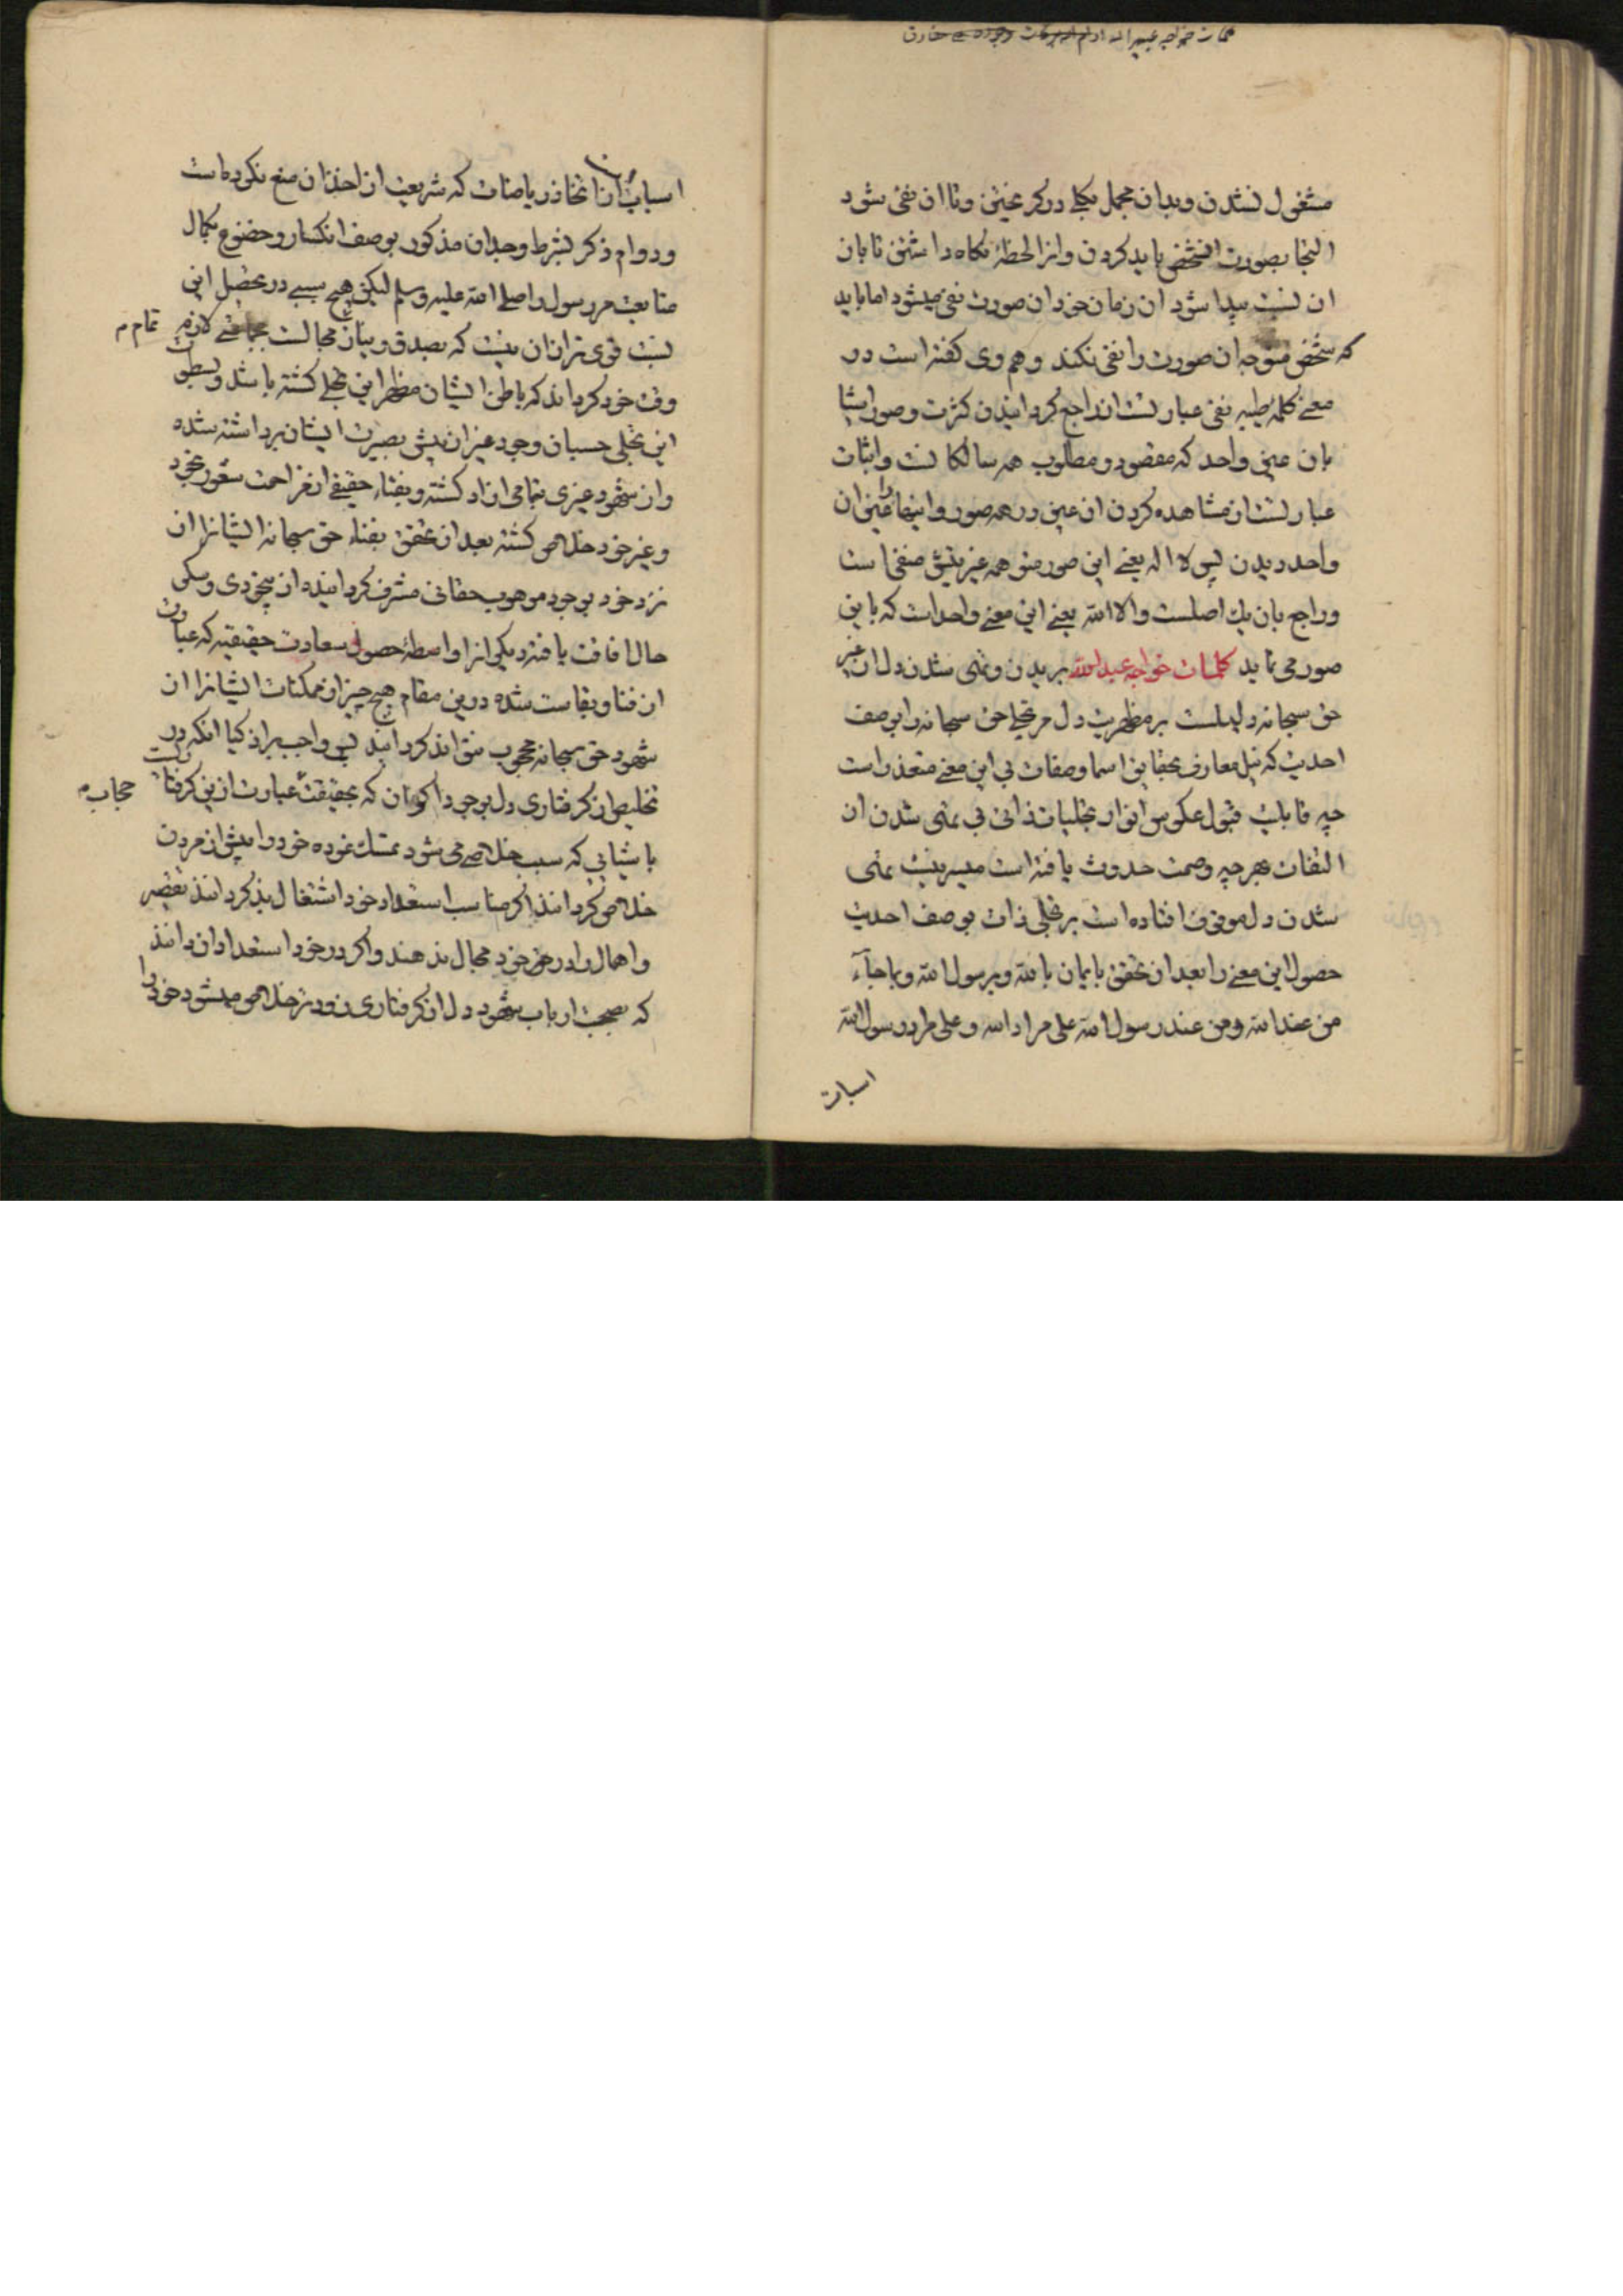 مشغول نشدن وبدان مجمل بکلی در کریختن وتا آن نفی شود
التجا بصورت آنشخص باید کردن وانرا لحظهٔ نکاه داشتن تا بان
آن نسبت پیدا شود آن زمان خود آن صورت نفی میشود اما باید
که شخص متوجه آن صورت را نفی نکند وهم وی کفته است در
معنی کلمهٔ طیبه نفی عبارتست از راجع کردانیدن کثرت وصور اشیا
بان معنی واحد که مقصود ومطلوب همه سالکانست واثبات
عبارتست از مشاهده کردن آن معنی در همه صور واینها را عین آن
واحد دیدن پس لا اله یعنی این صور متوهمه غیر نیست منفی است
وراجع بان یک اصلست والا الله یعنی این معنی واحد است که باین
صور می نماید کلمات خواجه عبیدالله بریدن وتهی شدن دل از غیر
حق سبحانه دلیلست بر مظهریت دل مر تجلی حق سبحانه را بوصف
احدیت که نیل معارف بحقایق اسما وصفات بی این معنی متعذر است
چه قابلیت قبول عکوس انوار تجلیات ذاتی بی تهی شدن از
التفات بهرچه وصمت حدوث یافته است میسر نیست تهی
شدن دل موقوف افتاده است بر تجلی ذات بوصف احدیت
حصول این معنی را بعد از تحقق بایمان بالله وبرسول الله وبما جآء
من عند الله ومن عند رسول الله علی مراد الله وعلی مراد رسول الله
اسبابست
اسبابست ازانها اتخاذ ریاضات که شریعت از اخذ آن منع نکرده است
ودوام ذکر بشرط وجدان مذکور بوصف انکسار وخضوع بکمال
متابعت مر رسول را صلی الله علیه وسلم لیکن هیچ سببی در تحصیل این
نسبت قوی تر از آن نیست که بصدق ونیاز مجالست بجماعتی لازم تمام
وقت خود کرده اند که باطن ایشان مظهر این تجلی کشته باشد وبسطوت
این تجلی حسبان وجود غیر از پیش بصیرت ایشان برداشته شده
واز شهود غیری بتمامی آزاد کشته وبفناء حقیقی از مزاحمت شعور بخود
وغیر خود خلاص کشته بعد از تحقق بفناء حق سبحانه ایشانرا از
نزد خود بوجود موهوب حقانی مشرف کردانیده از بیخودی وسکر
حال افاقت یافته دیکی انرا واسطهٔ حصول سعادت حقیقیه که عبارت
از فنا وبقاست شده درین مقام هیچ چیز از ممکنات ایشانرا از
شهود حق سبحانه محجوب نتواند کردانید پس واجب بر اذکیا آنکه در
تخلیص از کرفتاری دل بوجود اکوان که بحقیقت حجاب عبارت ازین کرفتاریست
باشیایی که سبب خلاصی می شود تمسک نموده خود را پیش از مردن
خلاص کردانند اکر مناسب استعداد خود اشتغال بذکر دانند تقصیر
واهمال را در حق خود مجال ندهند واکر در خود استعداد آن دانند
که بصحبت ارباب شهود دل از کرفتاری زودتر خلاص میشود خود را